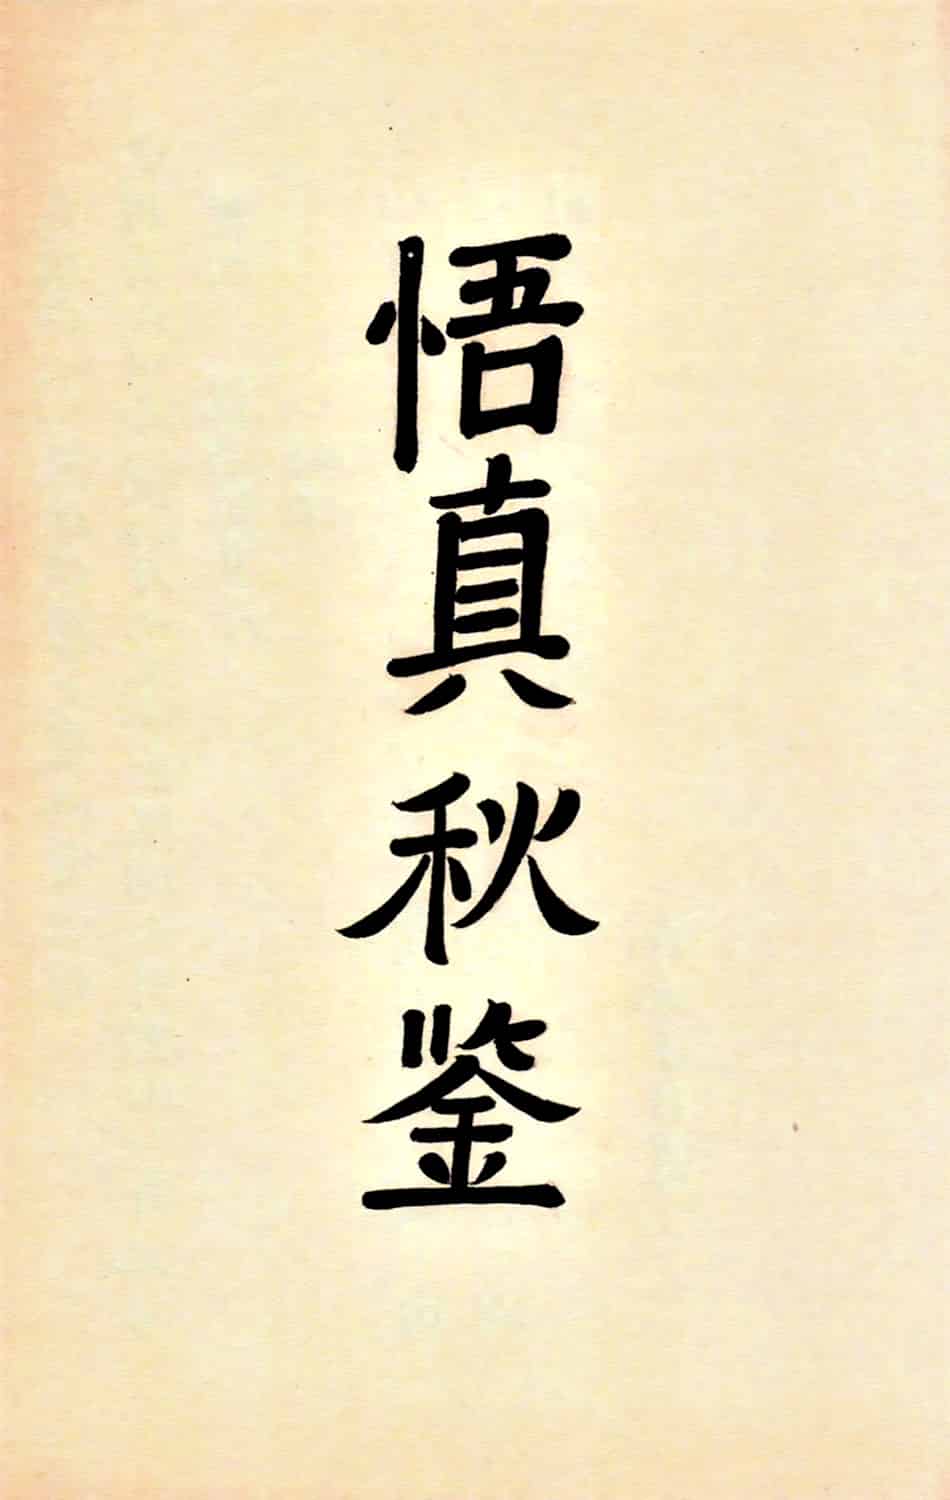 悟真秋鉴